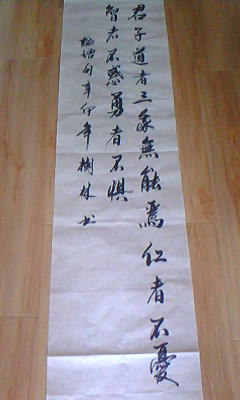 君子道者三我無能焉仁者不憂
智者不惑勇者不懼
論語句辛卯年樹林书